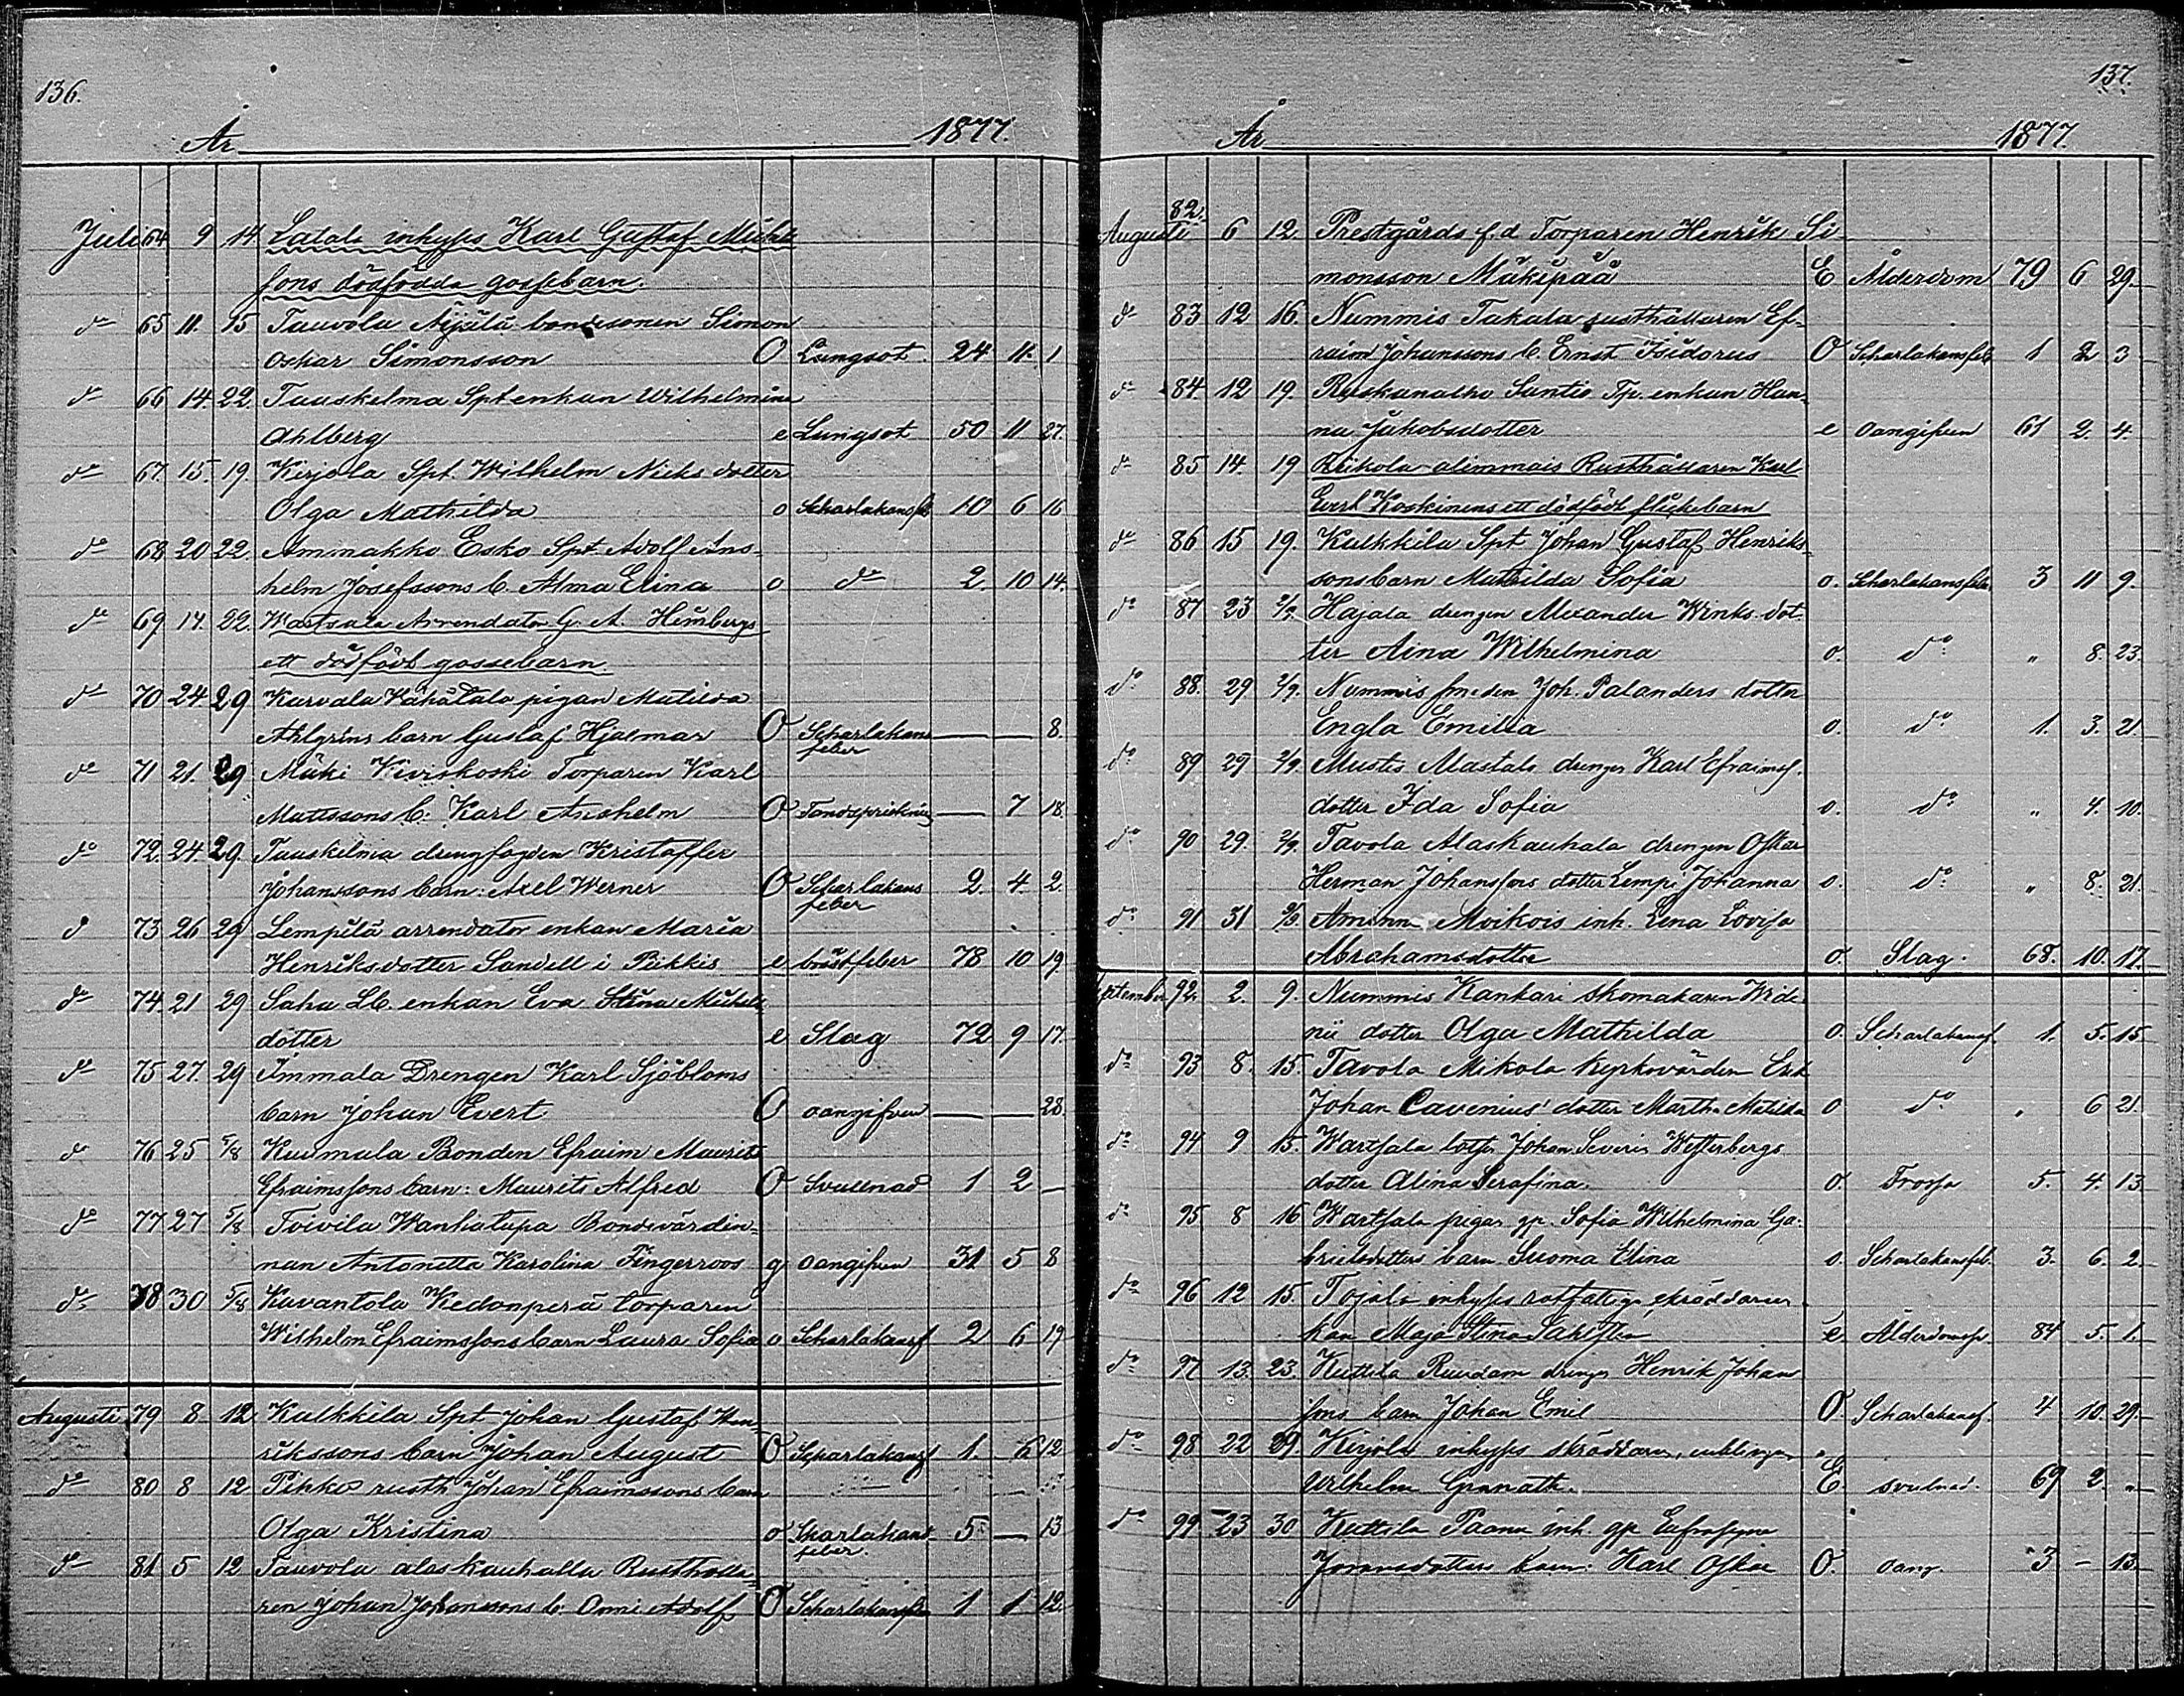 136.
År 1877.
Juli 64 9 14 Latala inhyses Karl Gustaf Michels
sons dödfödda gossebarn.
do 65 11. 15 Tauvola Äijälä bondesonen Simon
Oskar Simonsson O Lungsot. 24 11. 1
do 66 14. 22. Tuuskelma Spt enkan Wilhelmina
Ahlberg e Lungsot 50 11 27.
do 67. 15. 19. Kirjola Spt. Wilhelm Nicks dotter
Olga Mathilda o Scharlakansfb 10 6 16
do 68 20 22. Ammakko Esko Spt Adolf Ans-
helm Josefssons b. Alma Elina o do 2. 10 14.
do 69 17. 22. Wartsala Arrendator G. A. Heimbergs
ett dödfödt gossebarn
do 70 24 29 Karvala Vähätalo pigan Matilda
Ahlgrens barn Gustaf Hjalmar O Scharlakans
feber — — 8.
do 71 21. 29 Mäki Kiviskoski Torparen Karl
Mattssons b: Karl Anshelm O Tandsprickning — 7 18.
do 72. 24. 29. Tuuskelma drengfogden Kristoffer
Johanssons barn: Axel Werner O Scharlakans
feber 2. 4 2.
d 73 26 29 Lempilä arrendator enkan Maria
Henriksdotter Sandell i Pikkis e bröstfeber 78 10 19
do 74. 21 29 Saha Lb. enkan Eva Stina Michels
dotter e Slag 72 9 17.
do 75 27. 29 Immala Drengen Karl Sjöbloms
barn Johan Evert O oangifven — — 28.
do 76 25 5/8 Kuumala Bonden Efraim Maurits
Efraimssons barn: Maurits Alfred O Svullnad 1 2 —
do 77 27 5/8 Toivila Wanhatupa Bondevärdin-
nan Antonetta Karolina Fingerroos g oangifven 31 5 8
do 78 30 5/8 Kavantola Kedonperä torparen
Wilhelm Efraimssons barn Laura Sofia o Scharlakansf 2 6 19
Augusti 79 8 12 Kulkkila Spt Johan Gustaf Hen-
rikssons barn Johan August O Scharlakansf 1. 6 12
do 80 8 12 Pihko rusth Johan Efraimssons barn
Olga Kristina o Sharlakans
feber. 5 — 13
do 81 5 12 Tauvola alaskauhalla Rusthålla-
ren Johan Johanssons b. Onni Adolf O Scharlakansfeb 1 1 12.
137.
År 1877.
82.
Augusti 6 12. Prestgårds f.d Torparen Henrik Si-
monsson Mäkipää E Ålderdom 79 6 29.
do 83 12 16. Nummis Takala rusthållaren Ef-
raim Johanssons b. Ernst Isidorus O Scharlakansfeb 1 2 3
do 84. 12 19. Ruskanalho Suntio Tp. enkan Han-
na Jakobsdotter e oangifven 61 2. 4.
do 85 14. 19 Krikola alimmais Rusthållaren Karl
Evert Koskinens ett dödfödt flickebarn
do 86 15 19. Kulkkila Spt Johan Gustaf Henriks-
sons barn Mathilda Sofia o. Scharlakansfeber 3 11 9.
do 87 23 2/9. Hajala drengen Alexander Winks dot-
ter Aina Wilhelmina o. do „ 8. 23.
do 88. 29 2/9. Nummis smeden Joh. Palanders dotter
Engla Emilia o. do 1. 3. 21
do 89 29 2/9. Mustis Alastalo drengen Karl Efraimsf.
dotter Ida Sofia o. do „ 4. 10.
do 90 29. 2/9. Tavola Alaskauhala drengen Oskar
Herman Johanssons dotter Lempi Johanna o. do „ 8. 21
do 91 31 Moikois inh. Lena Lovisa
Abrahamsdotter o. Slag. 68. 10. 17.
September 92. 2. 9. Nummis Kankari skomakaren Wide-
nii dotter Olga Mathilda o. Scharlakansf. 1. 5. 15
do 93 8. 15. Tavola Mikola kyrkovärden Erik
Johan Cavenius' dotter Martha Matilda o do „ 6 21.
do 94 9 15. Wartsala lotsen Johan Severin Westerbergs
dotter Alina Serafina. o. Trossa 5. 4. 13
do 95 8 16 Wartsala pigan gp. Sofia Wilhelmina Ga-
brielsdotters barn Suoma Elina o. Scharlakansfeb. 3. 6. 2.
do 96 12 15. Tojala inhyses rotfattiga skräddaren
kan Maja Stina e Ålderdomsf. 84 5. 1.
do 97 13. 23. Kuttila Ruusdam drengen Henrik Johans
sons barn Johan Emil O. Scharlakansf. 4 10. 29.
do 98 22 29 Kirjola inhyses skräddaren, enklingen
Wilhelm Granath. E svulnad. 69 2. „
do 99 23 30 Kuttila Paanu inh. gp Eufrosyna
barn: Karl Oskar O. oang. 3 — 13.